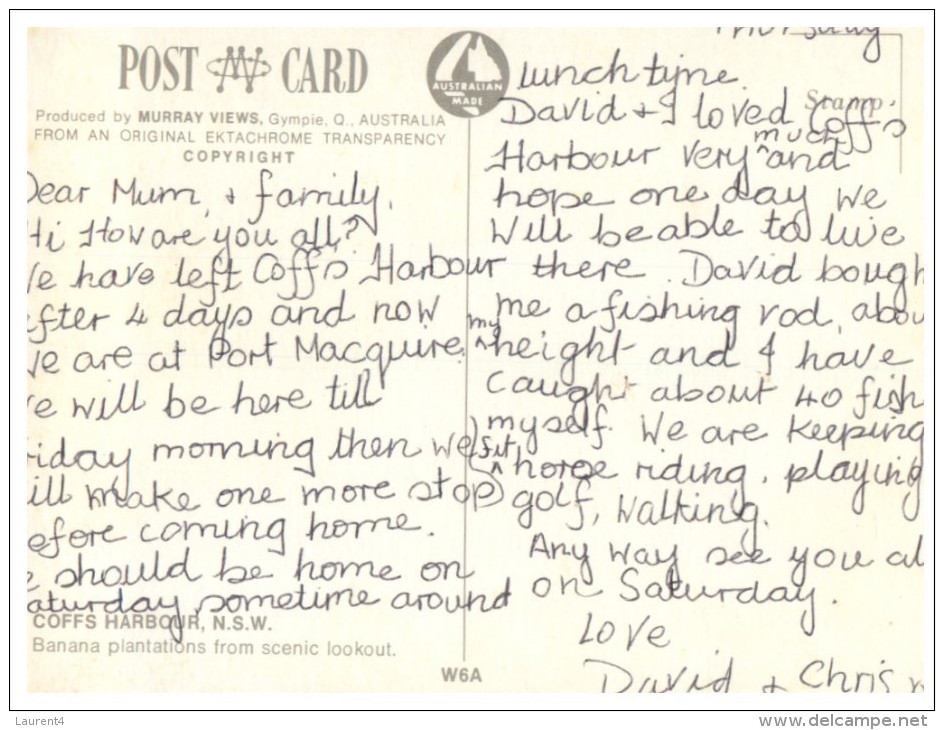 POST CARD
AUSTRALIAN
MADE
Produced by MURRAY VIEWS, Gympie, Q., AUSTRALIA
FROM AN ORIGINAL EKTACHROME TRANSPARENCY
COPYRIGHT
Dear Mum, & family,
Hi How are you all?
We have left Coffs Harbour
after 4 days and now
We are at Port Macquire.
We will be here till
Friday morning then we
will make one more stop
before coming home.
We should be home on
Saturday sometime around
COFFS HARBOUR, N.S.W.
Banana plantations from scenic lookout.
W6A
Thursday
Stamp
lunch time.
David & I loved Coffs
Harbour very ^much and
hope one day we
will beable to live
there. David bough
me a fishing rod, abou
^my height and I have
caught about 40 fish
myself. We are keeping
fit, ^ horse riding, playing
golf, walking.
Any way see you al
on Saturday.
Love
David & Chris
Laurent4
www.delcampe.net